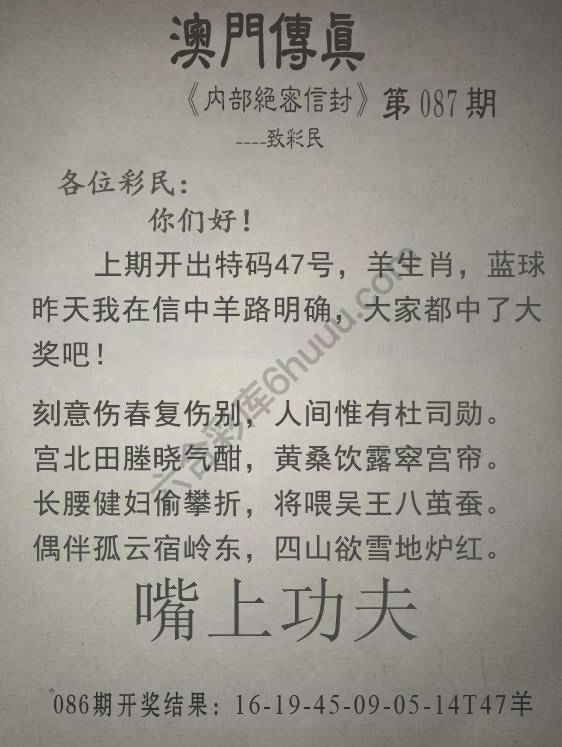 澳門傳眞
《内部絕密信封》第087期
----致彩民
各位彩民：
你们好！
上期开出特码47号，羊生肖，蓝球
昨天我在信中羊路明确，大家都中了大
奖吧！
刻意伤春复伤别，人间惟有杜司勋。
宫北田塍晓气酣，黄桑饮露窣宫帘。
长腰健妇偷攀折，将喂吴王八茧蚕。
偶伴孤云宿岭东，四山欲雪地炉红。
嘴上功夫
086期开奖结果：16-19-45-09-05-14T47羊
六合彩库6huuu.com